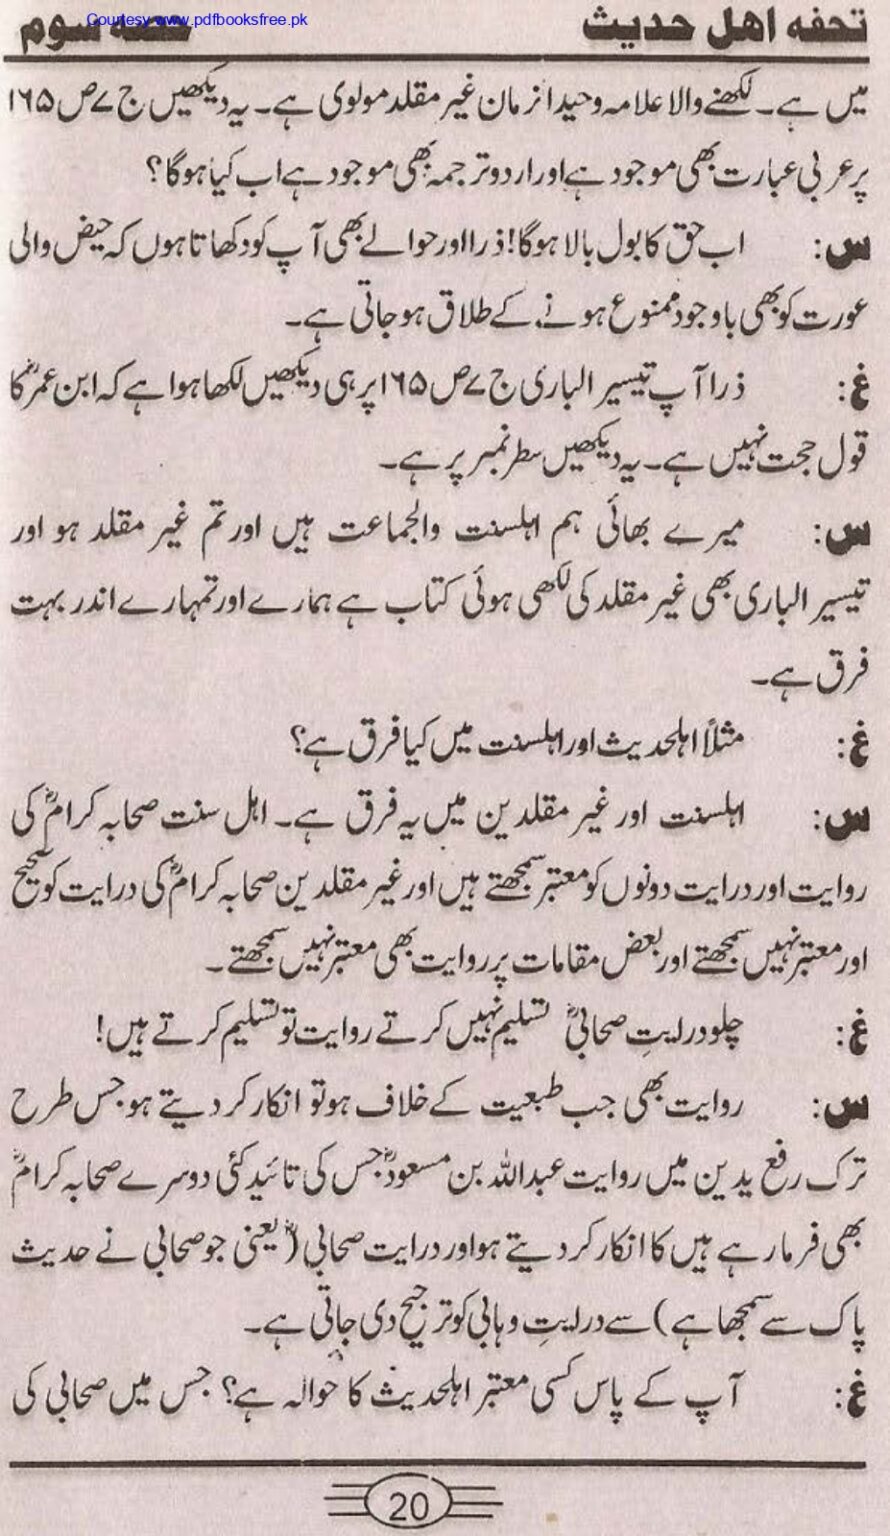 تحفہ اهل حدیث
حصہ سوم
Courtesy www.pdfbooksfree.pk
میں ہے۔ لکھنے والا علامہ وحیدانرمان غیر مقلد مولوی ہے۔ یہ دیکھیں ج ۷ ص ۱۶۵
پر عربی عبارت بھی موجود ہے اور اردو ترجمہ بھی موجود ہے اب کیا ہوگا؟
س: اب حق کا بول بالا ہوگا! ذرا اور حوالے بھی آپ کو دکھاتا ہوں کہ حیض والی
عورت کو بھی باوجود ممنوع ہونے کے طلاق ہو جاتی ہے۔
غ: ذرا آپ تیسیر الباری ج ۷ ص ۱۶۵ پر ہی دیکھیں لکھا ہوا ہے کہ ابن عمرؓ کا
قول حجت نہیں ہے۔ یہ دیکھیں سطر نمبر پر ہے۔
س: میرے بھائی ہم اہلسنت والجماعت ہیں اور تم غیر مقلد ہو اور
تیسیر الباری بھی غیر مقلد کی لکھی ہوئی کتاب ہے ہمارے اور تمہارے اندر بہت
فرق ہے۔
غ: مثلاً اہلحدیث اور اہلسنت میں کیا فرق ہے؟
س: اہلسنت اور غیر مقلدین میں یہ فرق ہے۔ اہل سنت صحابہ کرامؓ کی
روایت اور درایت دونوں کو معتبر سمجھتے ہیں اور غیر مقلدین صحابہ کرامؓ کی درایت کو صحیح
اور معتبر نہیں سمجھتے اور بعض مقامات پر روایت بھی معتبر نہیں سمجھتے۔
غ: چلو درایتِ صحابیؓ تسلیم نہیں کرتے روایت تو تسلیم کرتے ہیں!
س: روایت بھی جب طبعیت کے خلاف ہو تو انکار کر دیتے ہو جس طرح
ترک رفع یدین میں روایت عبداللہ بن مسعودؓ جس کی تائید کئی دوسرے صحابہ کرامؓ
بھی فرما رہے ہیں کا انکار کر دیتے ہو اور درایت صحابیؓ (یعنی جو صحابی نے حدیث
پاک سے سمجھا ہے) سے درایتِ وہابی کو ترجیح دی جاتی ہے۔
غ: آپ کے پاس کسی معتبر اہلحدیث کا حوالہ ہے؟ جس میں صحابی کی
20